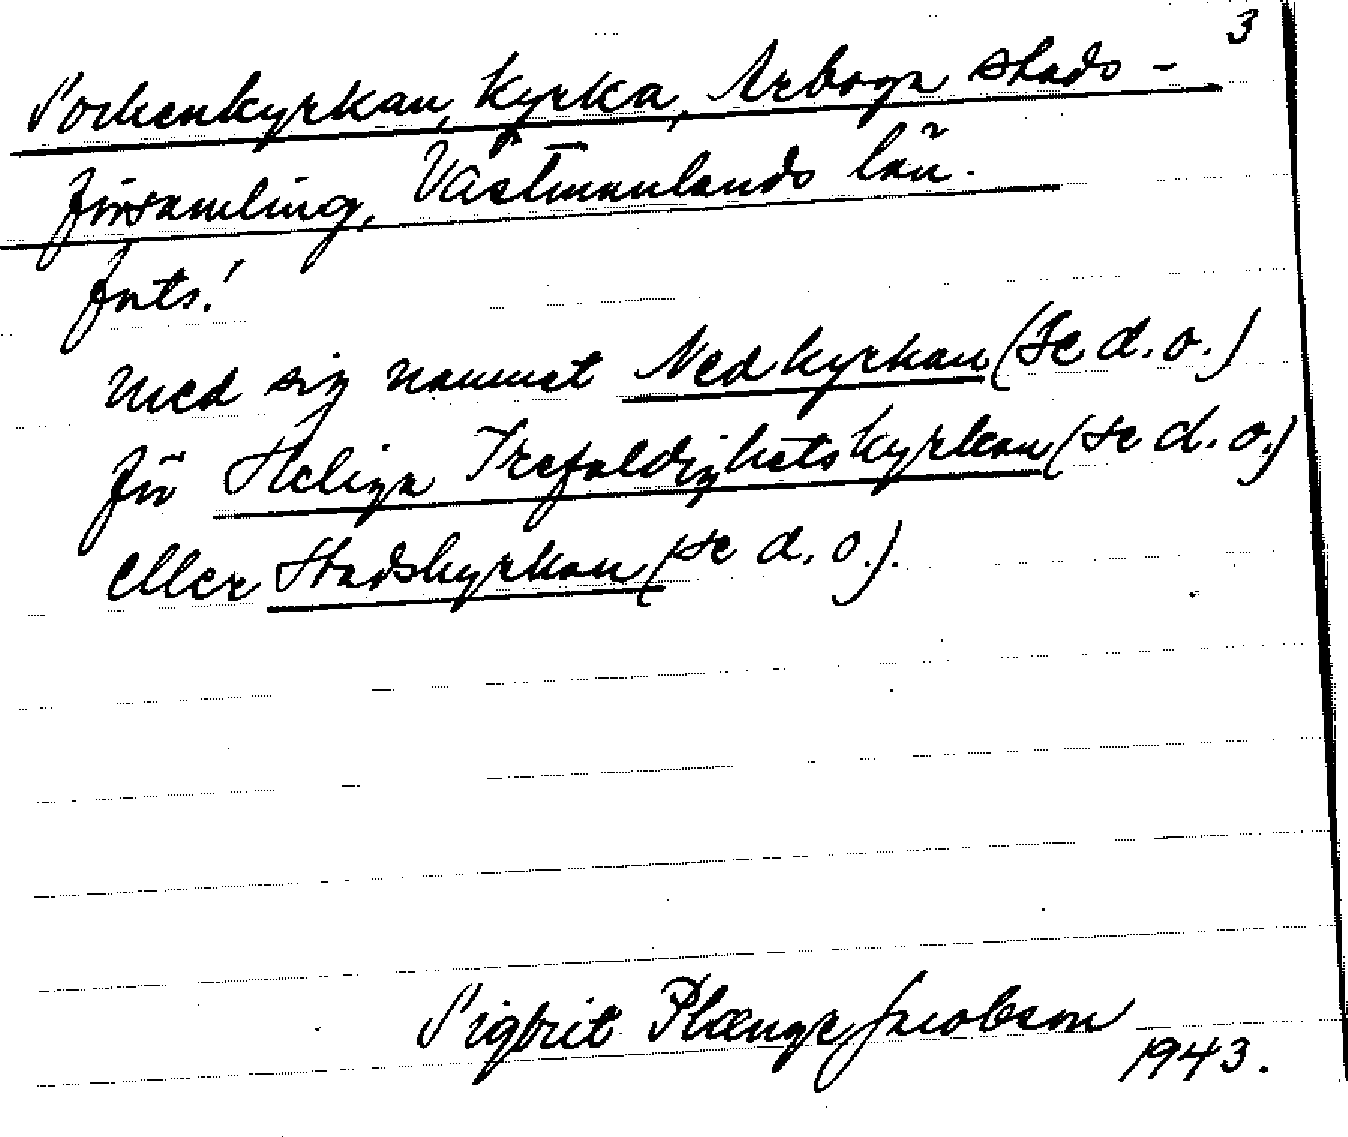 3
Sockenkyrkan, kyrka, Arboga stads-
församling, Västmanlands län.
forts.!
med sig namnet Nedkyrkan (se d.o.)
för Heliga Trefaldighetskyrkan (se d.o.)
eller Stadskyrkan (se d.o.).
Sigbrit Plænge Jacobson
1943.